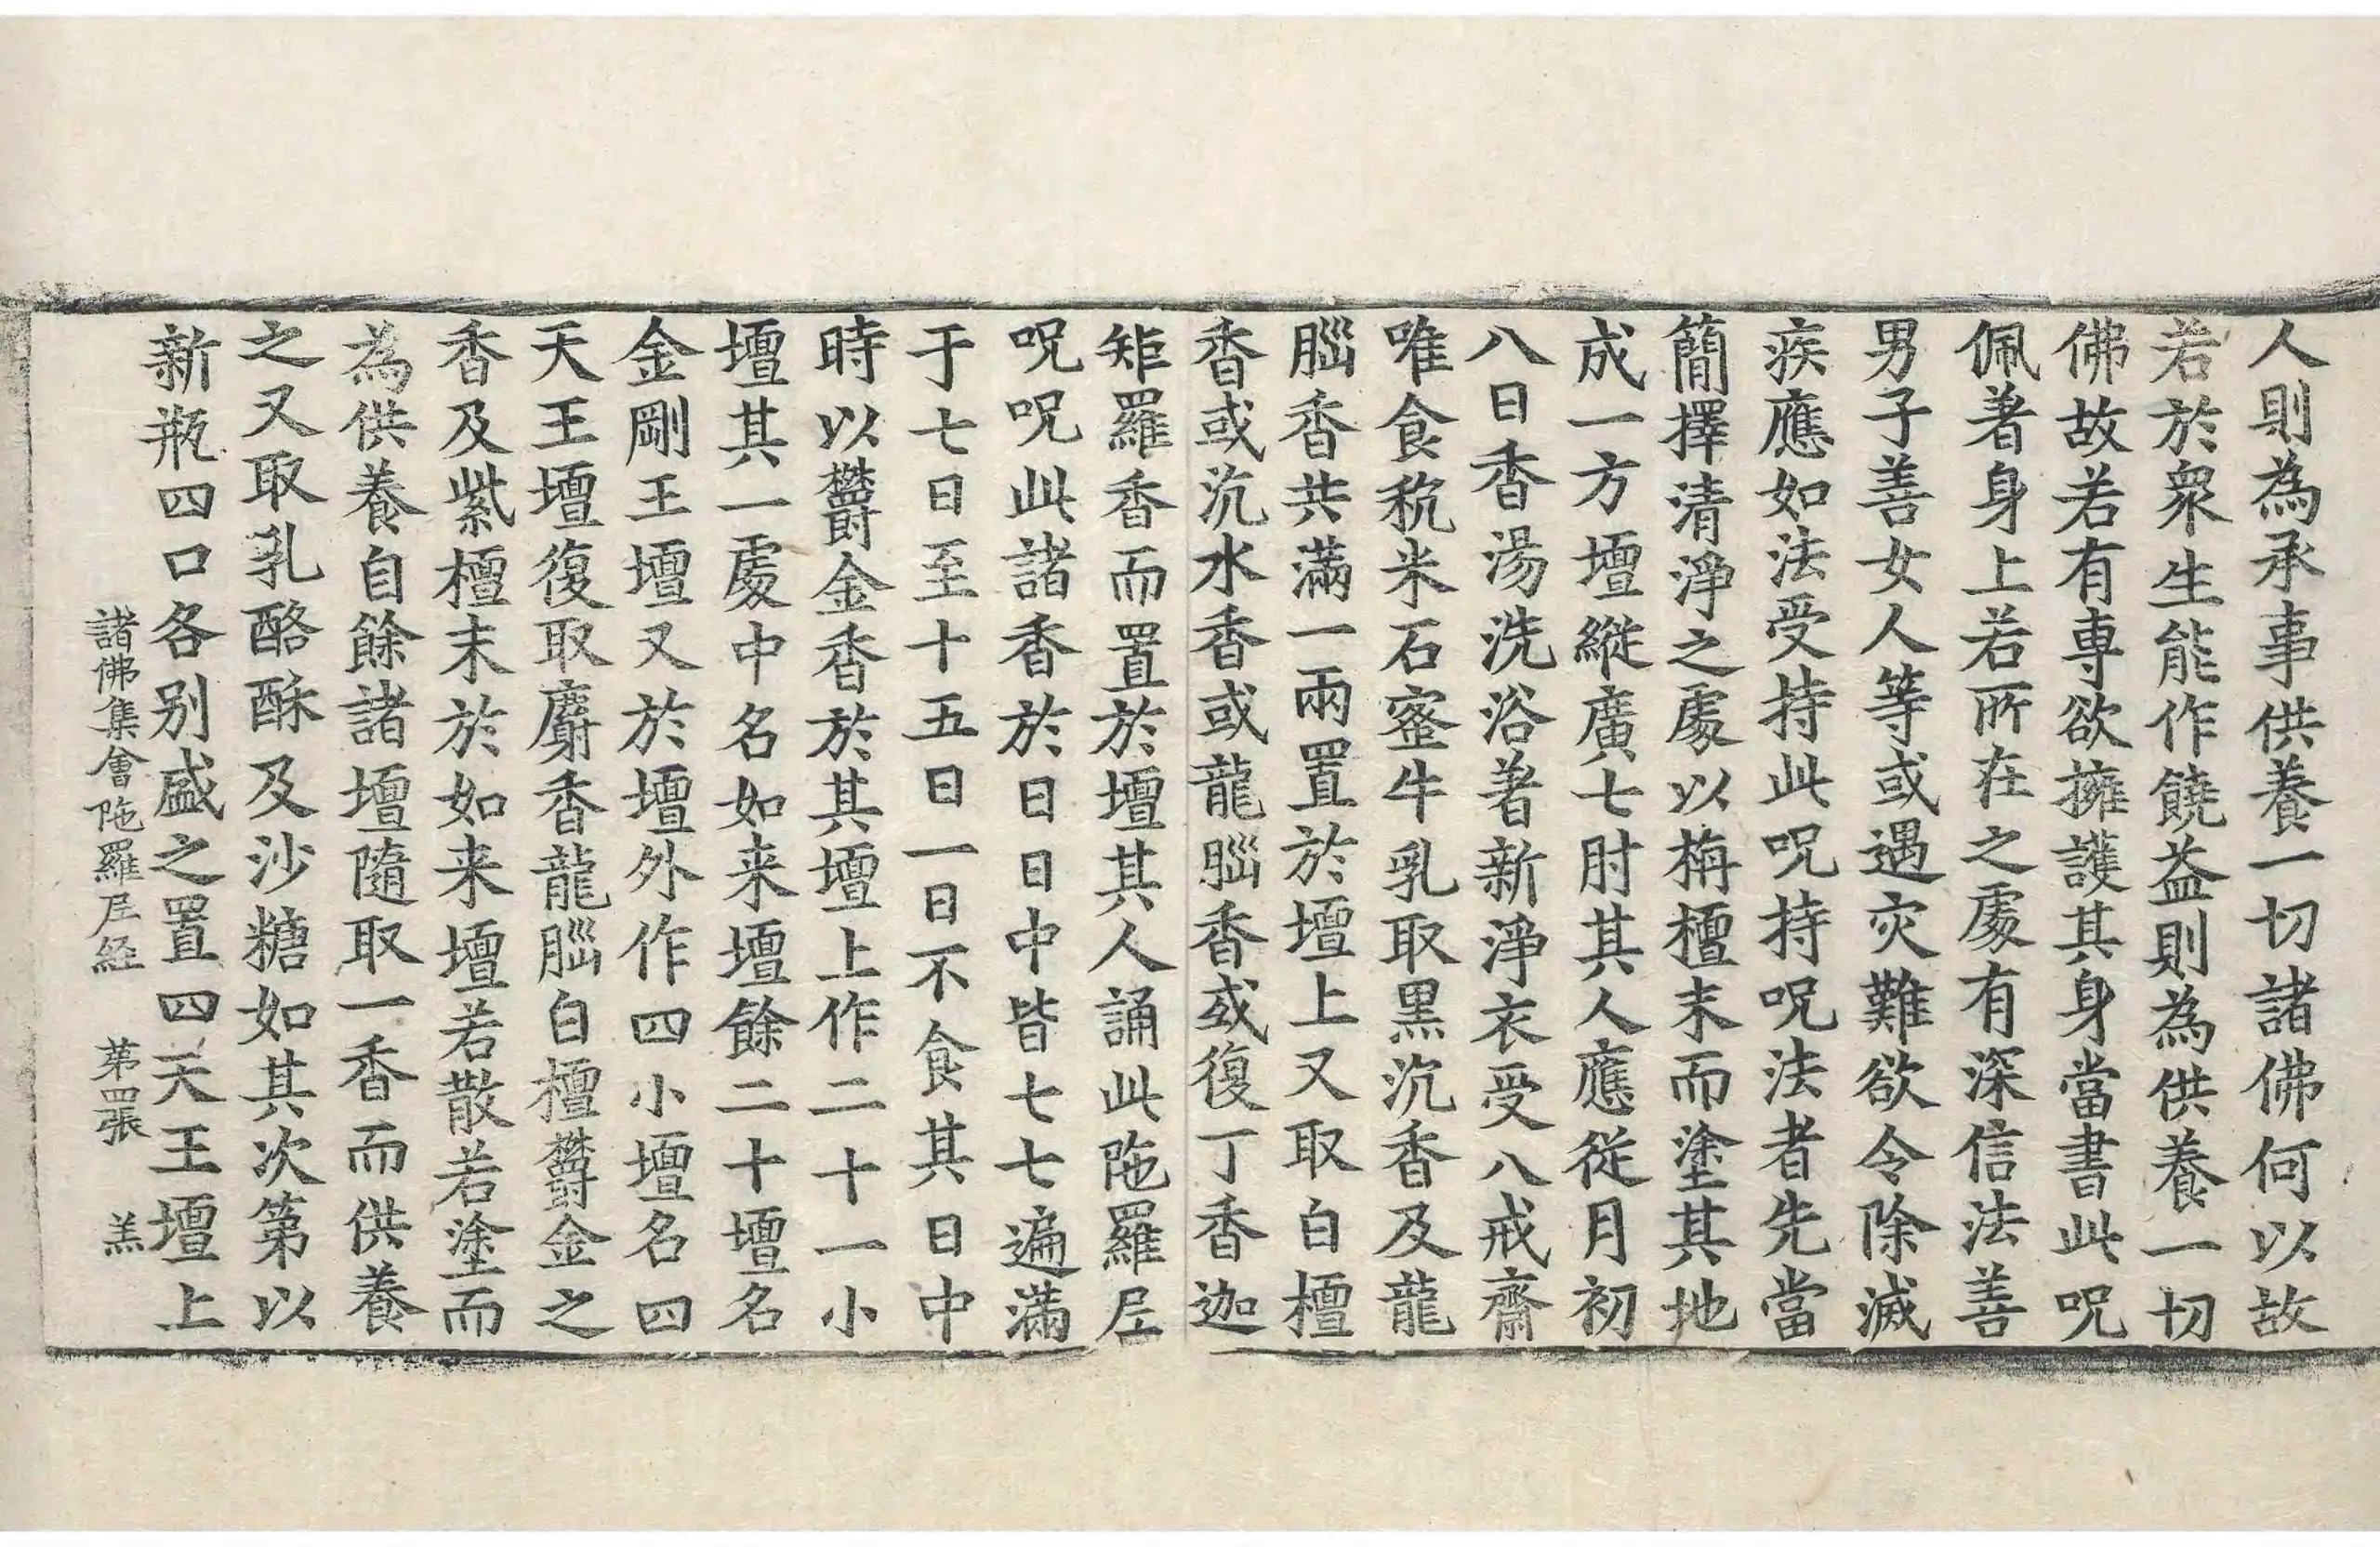 人則為承事供養一切諸佛何以故
若於衆生能作饒益則為供養一切
佛故若有專欲擁護其身當書此呪
佩著身上若所在之處有深信法善
男子善女人等或遇灾難欲令除滅
疾應如法受持此呪持呪法者先當
簡擇清淨之處以栴檀末而塗其地
成一方壇縱廣七肘其人應從月初
八日香湯洗浴著新淨衣受八戒齋
唯食秔米石蜜牛乳取黑沉香及龍
腦香共滿一兩置於壇上又取白檀
香或沉水香或龍腦香或復丁香迦
矩羅香而置於壇其人誦此陁羅尼
呪呪此諸香於日日中皆七七遍滿
于七日至十五日一日不食其日中
時以欝金香於其壇上作二十一小
壇其一處中名如来壇餘二十壇名
金剛王壇又於壇外作四小壇名四
天王壇復取麝香龍腦白檀欝金之
香及紫檀末於如来壇若散若塗而
為供養自餘諸壇隨取一香而供養
之又取乳酪酥及沙糖如其次第以
新瓶四口各别盛之置四天王壇上
諸佛集會陁羅尼経 苐四張 羔